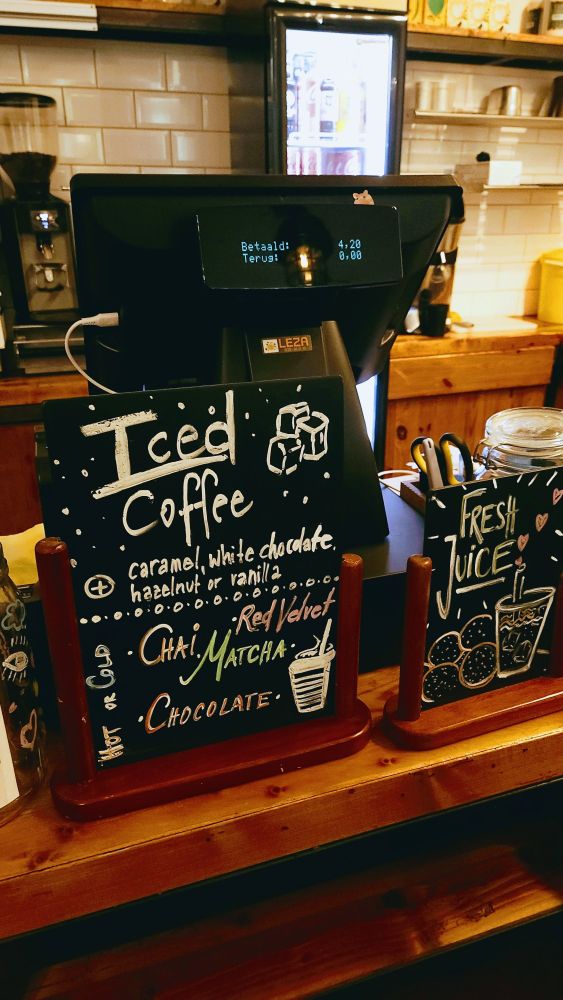 Betaald: 4,20
Terug: 0,00
LEZA
Iced
Coffee
+ caramel, white chocolate,
hazelnut or vanilla
Red Velvet
HOT OR COLD
· CHAI ·
MATCHA ·
· CHOCOLATE ·
FRESH
JUICE